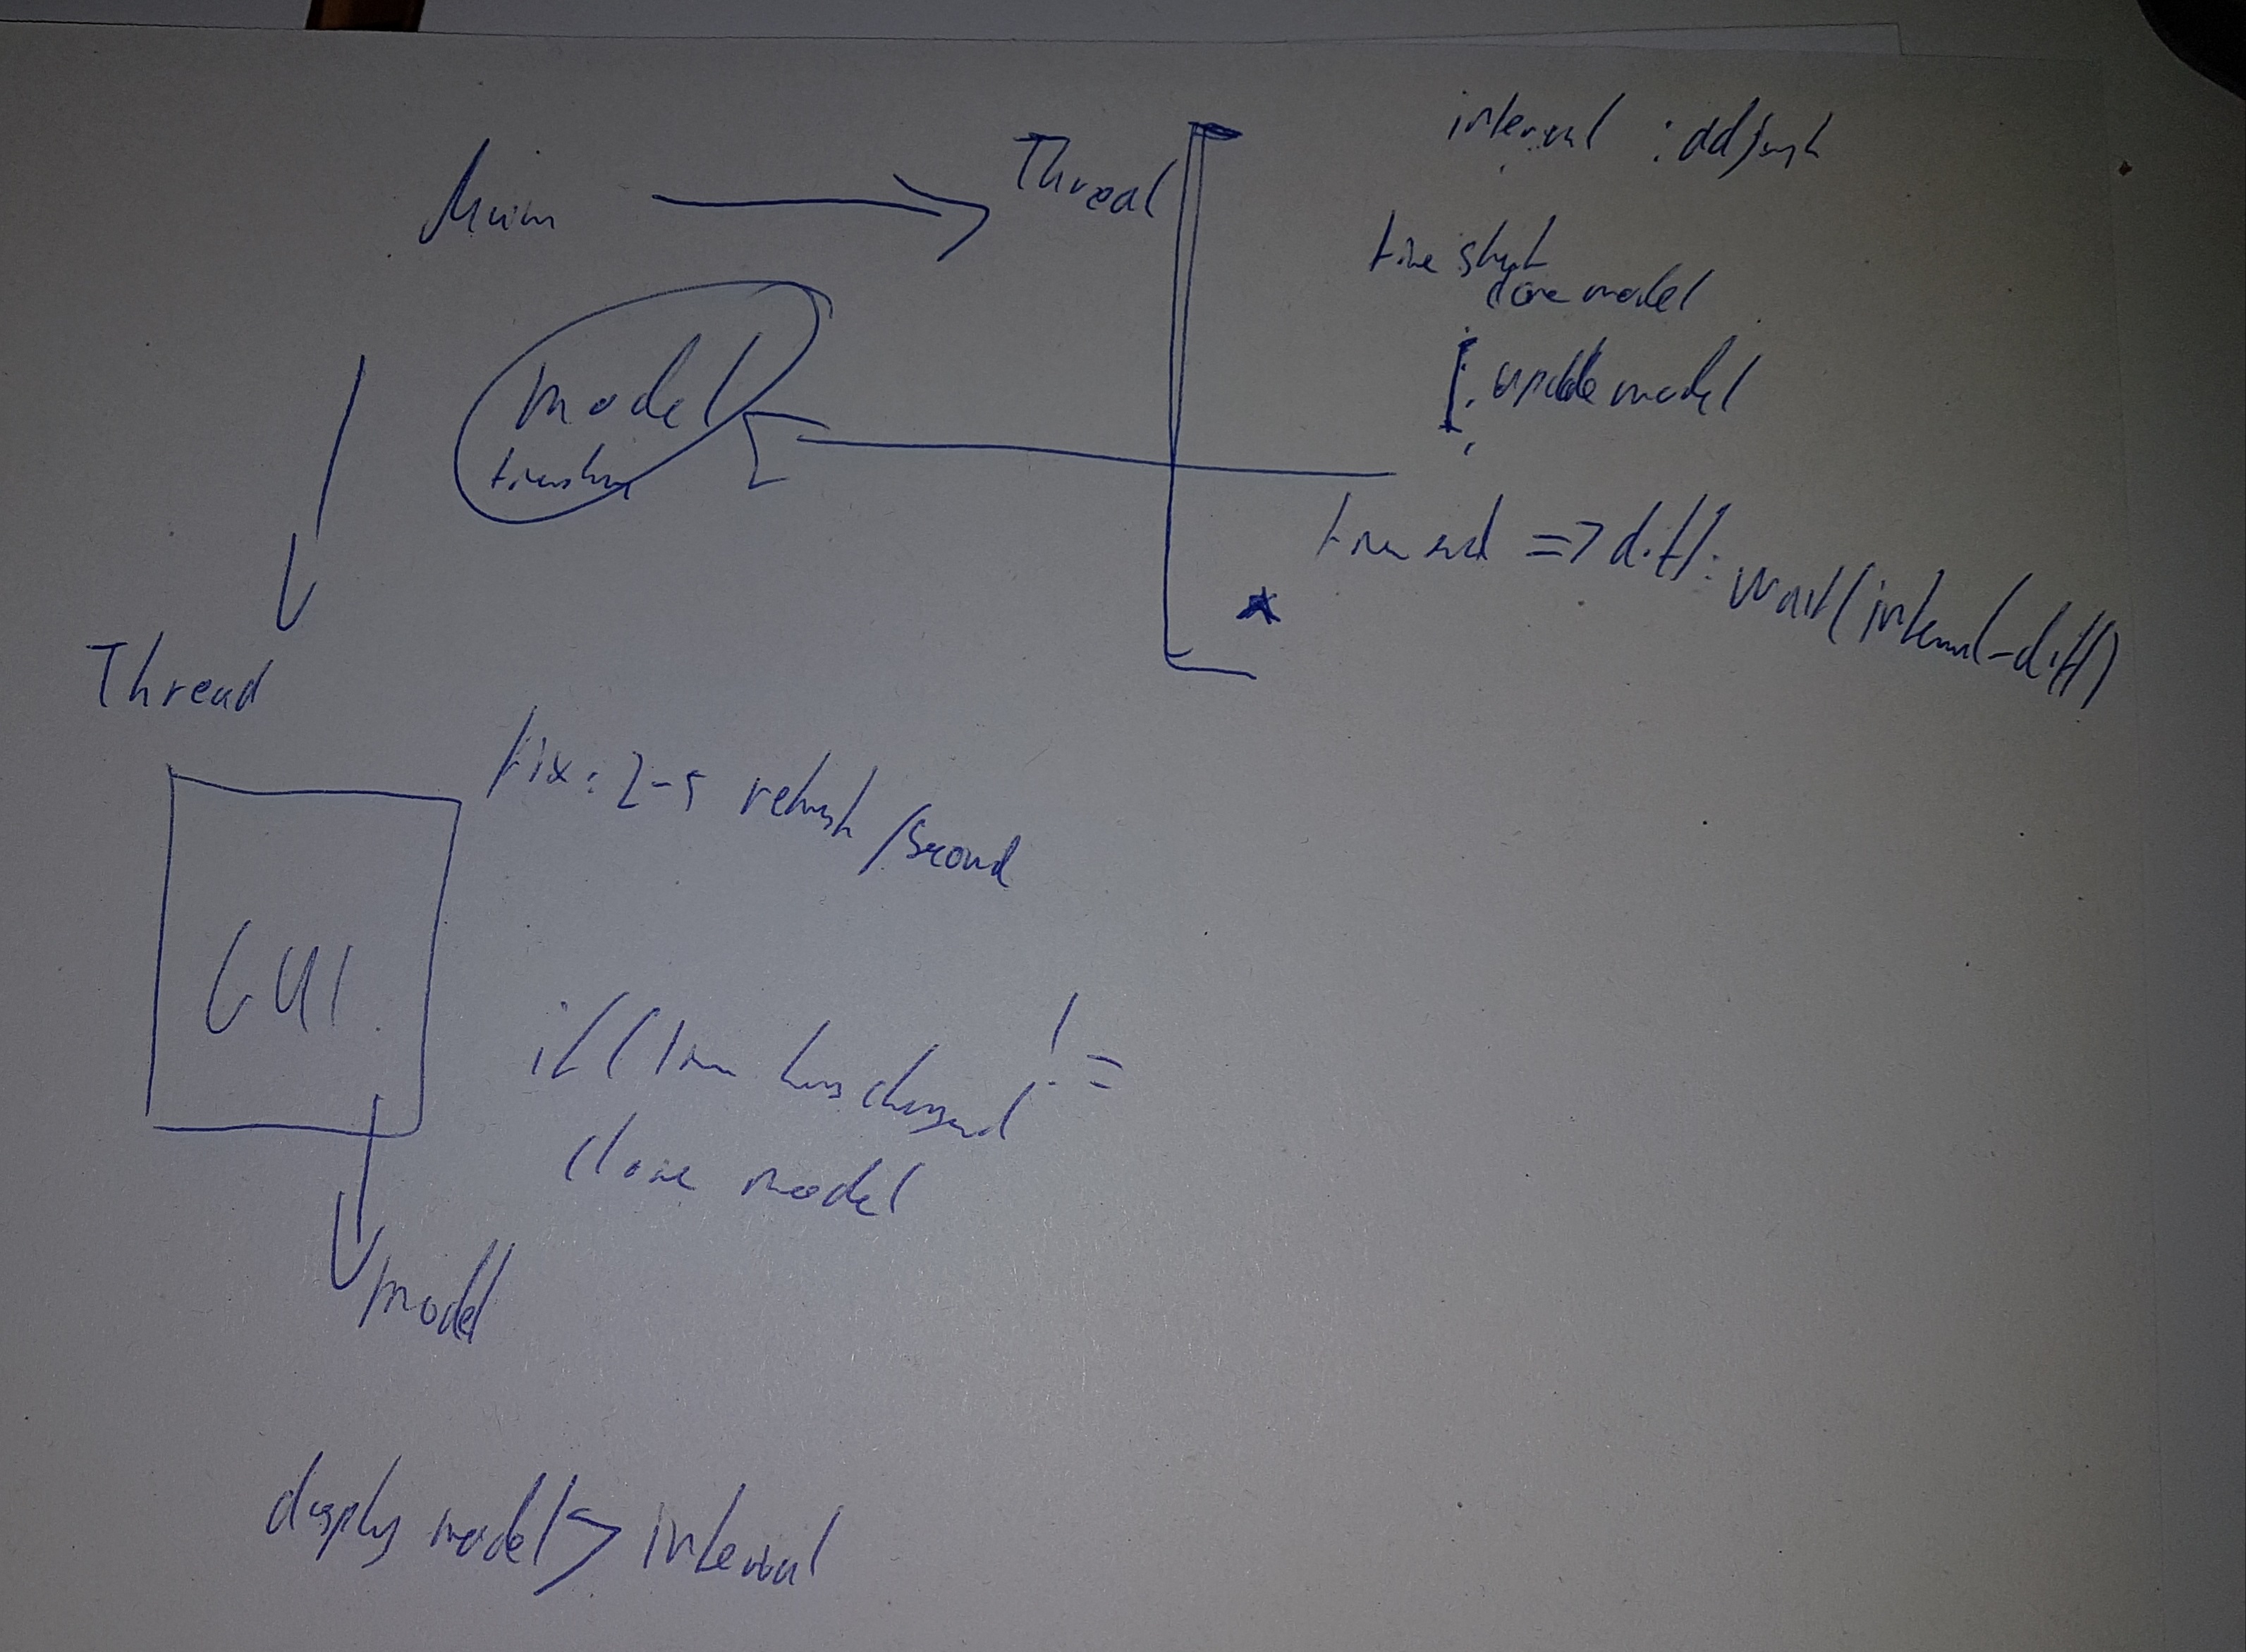 interval :
Main Thread
time start
clone model
model
update model
time end => diff: wait(interval-diff)
Thread
fix: 2-5 refresh /second
GUI
if(time has changed !=
clone model
model
display model > interval